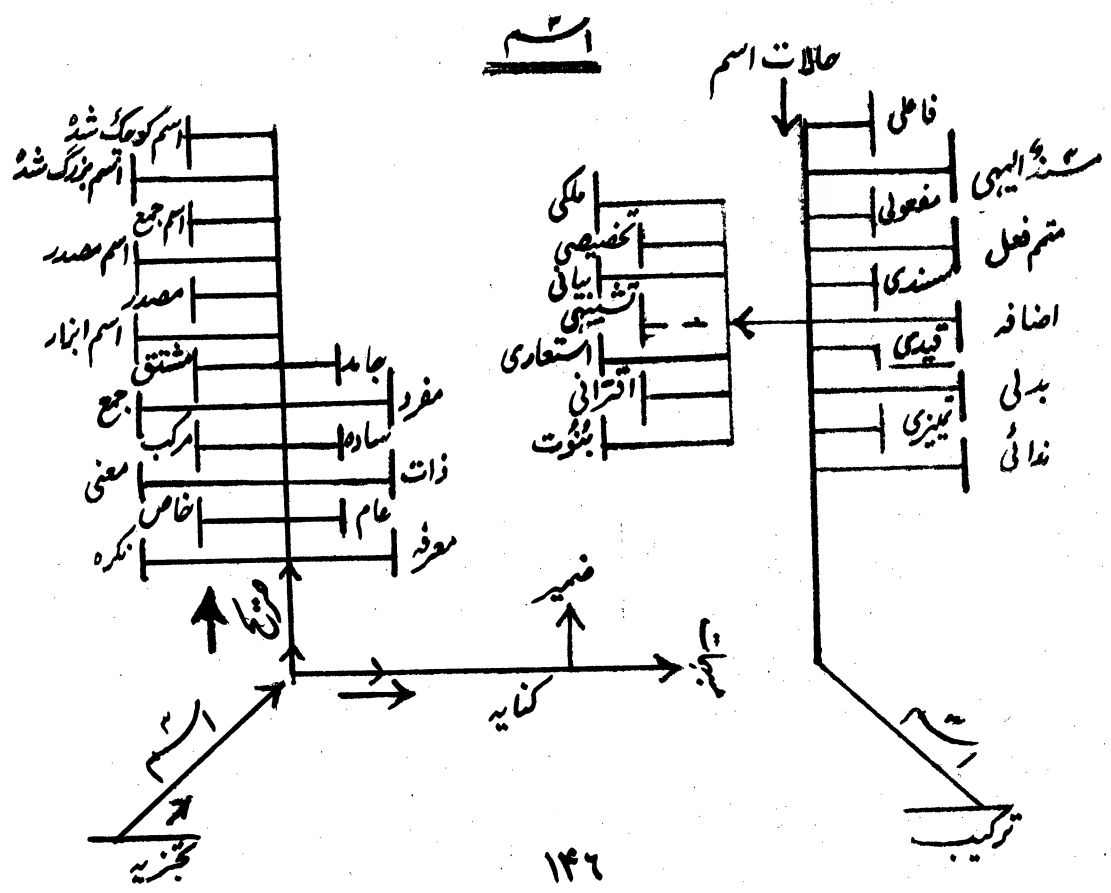 اسم
حالات اسم
فاعلی
مسندٌالیهی
مفعولی
متمم فعل
مسندی
اضافه
قیدی
بدلی
تمییزی
ندائی
ملکی
تخصیصی
بیانی
تشبیهی
استعاری
اقترانی
بنُوّت
اسم کوچک شده
اسم بزرگ شده
اسم جمع
اسم مصدر
مصدر
اسم ابزار
جامد
مشتق
مفرد
جمع
ساده
مرکب
ذات
معنی
عام
خاص
معرفه
نکره
ضمیر
کنایه
اسم
تجزیه
اسم
ترکیب
۱۴۶